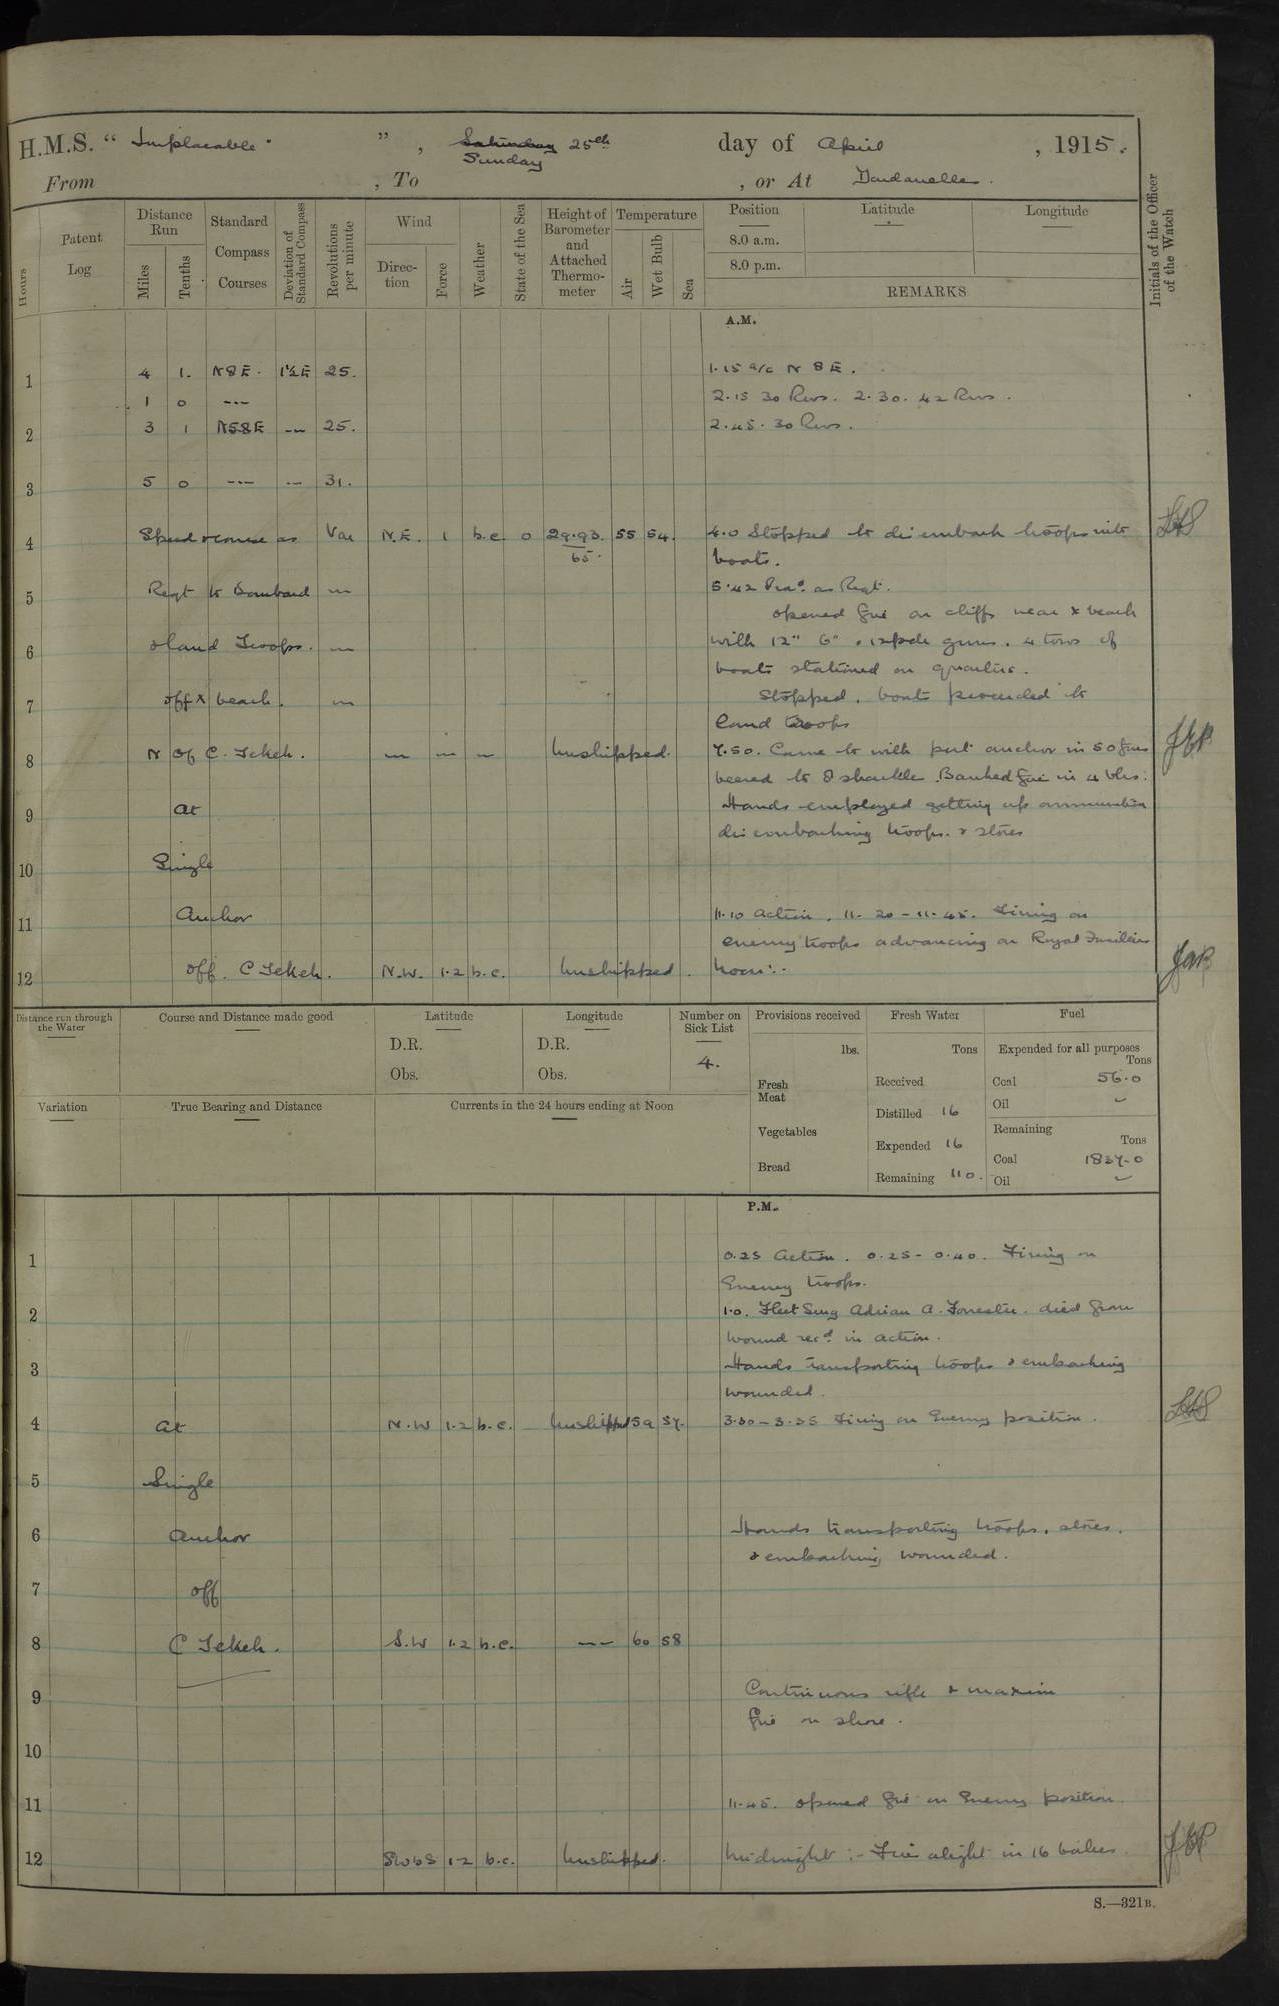 H.M.S. " Implacable " , Saturday 25th day of April , 1915.
Sunday
From , To , or At Dardanelles.
Hours
Patent Log
Distance Run
Miles Tenths
Standard Compass Courses
Deviation of Standard Compass
Revolutions per minute
Wind
Direction Force
Weather
State of the Sea
Height of Barometer and Attached Thermometer
Temperature
Air Wet Bulb Sea
Position Latitude Longitude
8.0 a.m.
8.0 p.m.
REMARKS
Initials of the Officer of the Watch
A.M.
1 4 1. N8E. 1½E 25. 1.15 a/c N 8 E.
1 0 -.- 2.15 30 Revs. 2.30. 42 Revs.
2 3 1 N58E -.- 25. 2.45. 30 Revs.
3 5 0 -.- -.- 31.
4 Speed & course as Var N.E. 1 b.c. 0 29.93 55 54. 4.0 Stopped to disembark troops into
65. boats.
5 Reqt to Bombard 5.42 Procd. as Reqt.
opened fire on cliffs near X beach
6 & land Troops. with 12" 6" & 12 pdr guns. 4 tows of
boats stationed on quarters.
7 off X beach. Stopped, boats proceeded to
land troops
8 N of C. Tekeh. unshipped. 7.50. Came to with port anchor in 50 fms
veered to 8 shackle. Banked fires in 4 blrs.
9 At Hands employed getting up ammunition
disembarking troops. & stores
10 Single
11 Anchor 11.10 Action. 11.20 - 11.45. Firing on
enemy troops advancing on Royal Fusiliers
12 off. C Tekeh. N.W. 1.2 b.c. unshipped. Noon:-
Distance run through the Water
Course and Distance made good
Latitude
D.R.
Obs.
Longitude
D.R.
Obs.
Number on Sick List
4.
Provisions received
lbs.
Fresh Meat
Vegetables
Bread
Fresh Water
Tons
Received
Distilled 16
Expended 16
Remaining 110.
Fuel
Expended for all purposes
Tons
Coal 56.0
Oil
Remaining
Tons
Coal 1837.0
Oil
Variation
True Bearing and Distance
Currents in the 24 hours ending at Noon
P.M.
1 0.25 Action. 0.25 - 0.40. Firing on
Enemy troops.
2 1.0. Fleet Surg Adrian A. Forrester. died from
wound recd. in action.
3 Hands transporting troops & embarking
wounded.
4 At N.W 1.2 b.c. unshipped 59 57. 3.30 - 3.35 Firing on Enemy position.
5 Single
6 Anchor Hands transporting troops, stores,
& embarking wounded.
7 off
8 C Tekeh. S.W 1.2 b.c. -.- 60 58
9 Continuous rifle & maxim
fire on shore.
10
11 11.45. opened fire on Enemy position.
12 SWbS 1-2 b.c. unshipped. Midnight:- Fires alight in 16 boilers
S.—321B.